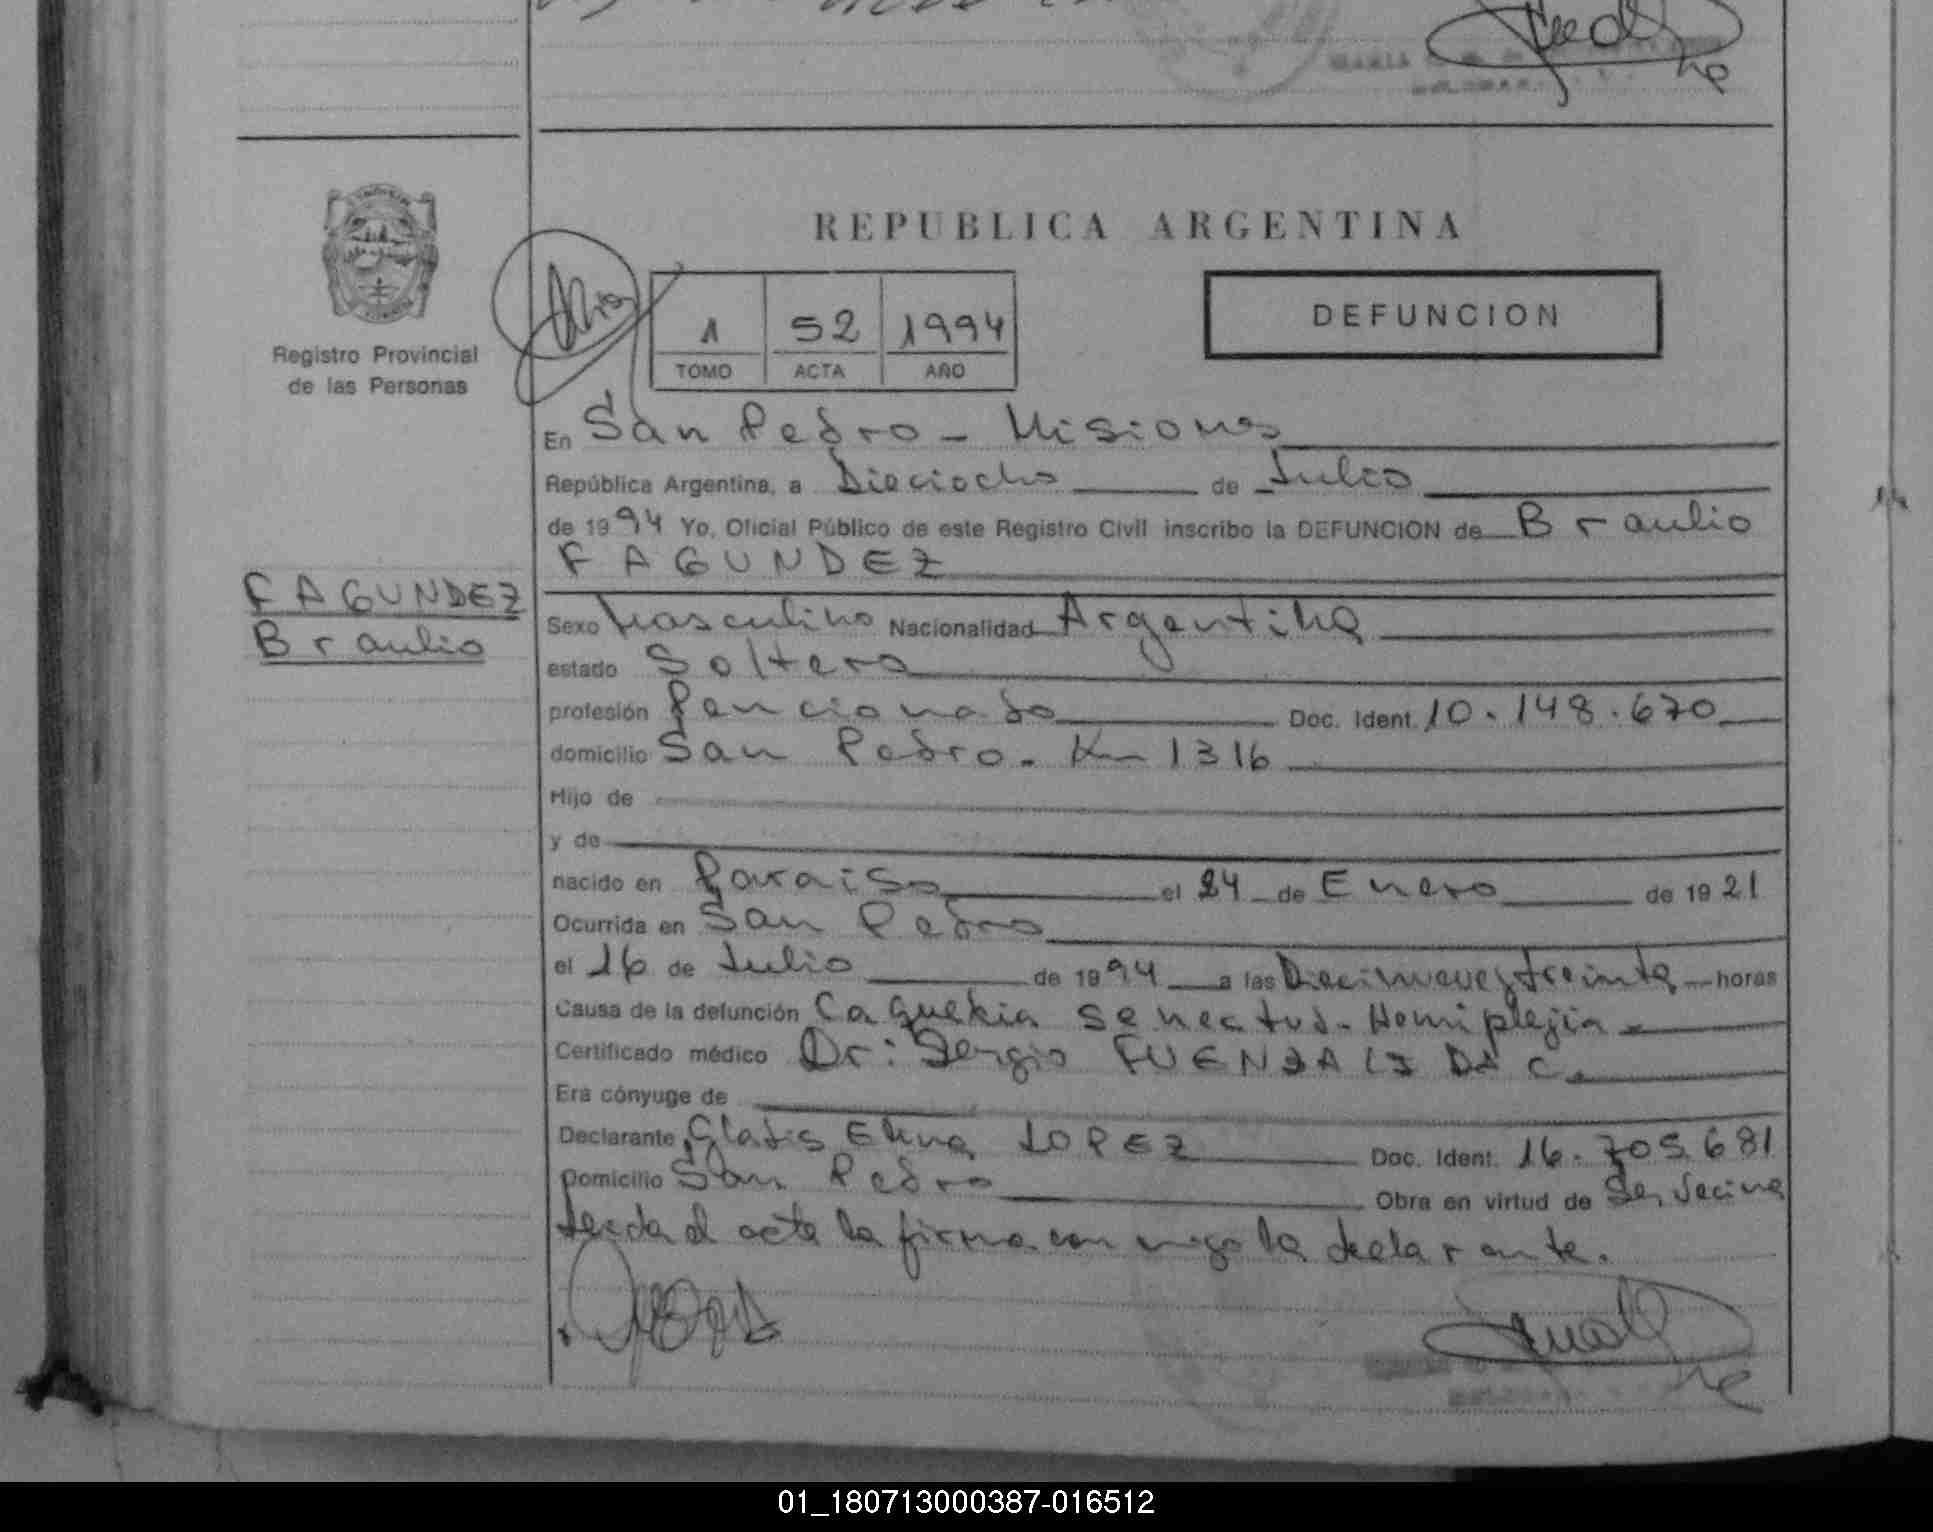 REPUBLICA ARGENTINA
Registro Provincial
de las Personas
1 52 1994
TOMO ACTA AÑO
DEFUNCION
En San Pedro - Misiones
República Argentina, a Dieciocho de Julio
de 1994 Yo, Oficial Público de este Registro Civil inscribo la DEFUNCION de Braulio
FAGUNDEZ
FAGUNDEZ
Braulio
Sexo Masculino Nacionalidad Argentina
estado Soltero
profesión Pencionado Doc. Ident. 10.148.670
domicilio San Pedro. Km 1316
Hijo de
y de
nacido en Paraiso el 24 de Enero de 1921
Ocurrida en San Pedro
el 16 de Julio de 1994 a las Diecinueve y treinta horas
Causa de la defunción Caquekia senectud. Hemiplejia
Certificado médico Dr: Sergio FUENZALIDA C.
Era cónyuge de
Declarante Gladis Elena LOPEZ Doc. Ident. 16.705.681
Domicilio San Pedro Obra en virtud de Ser vecina
Leida el acta la firma con migo la declarante.
01_180713000387-016512